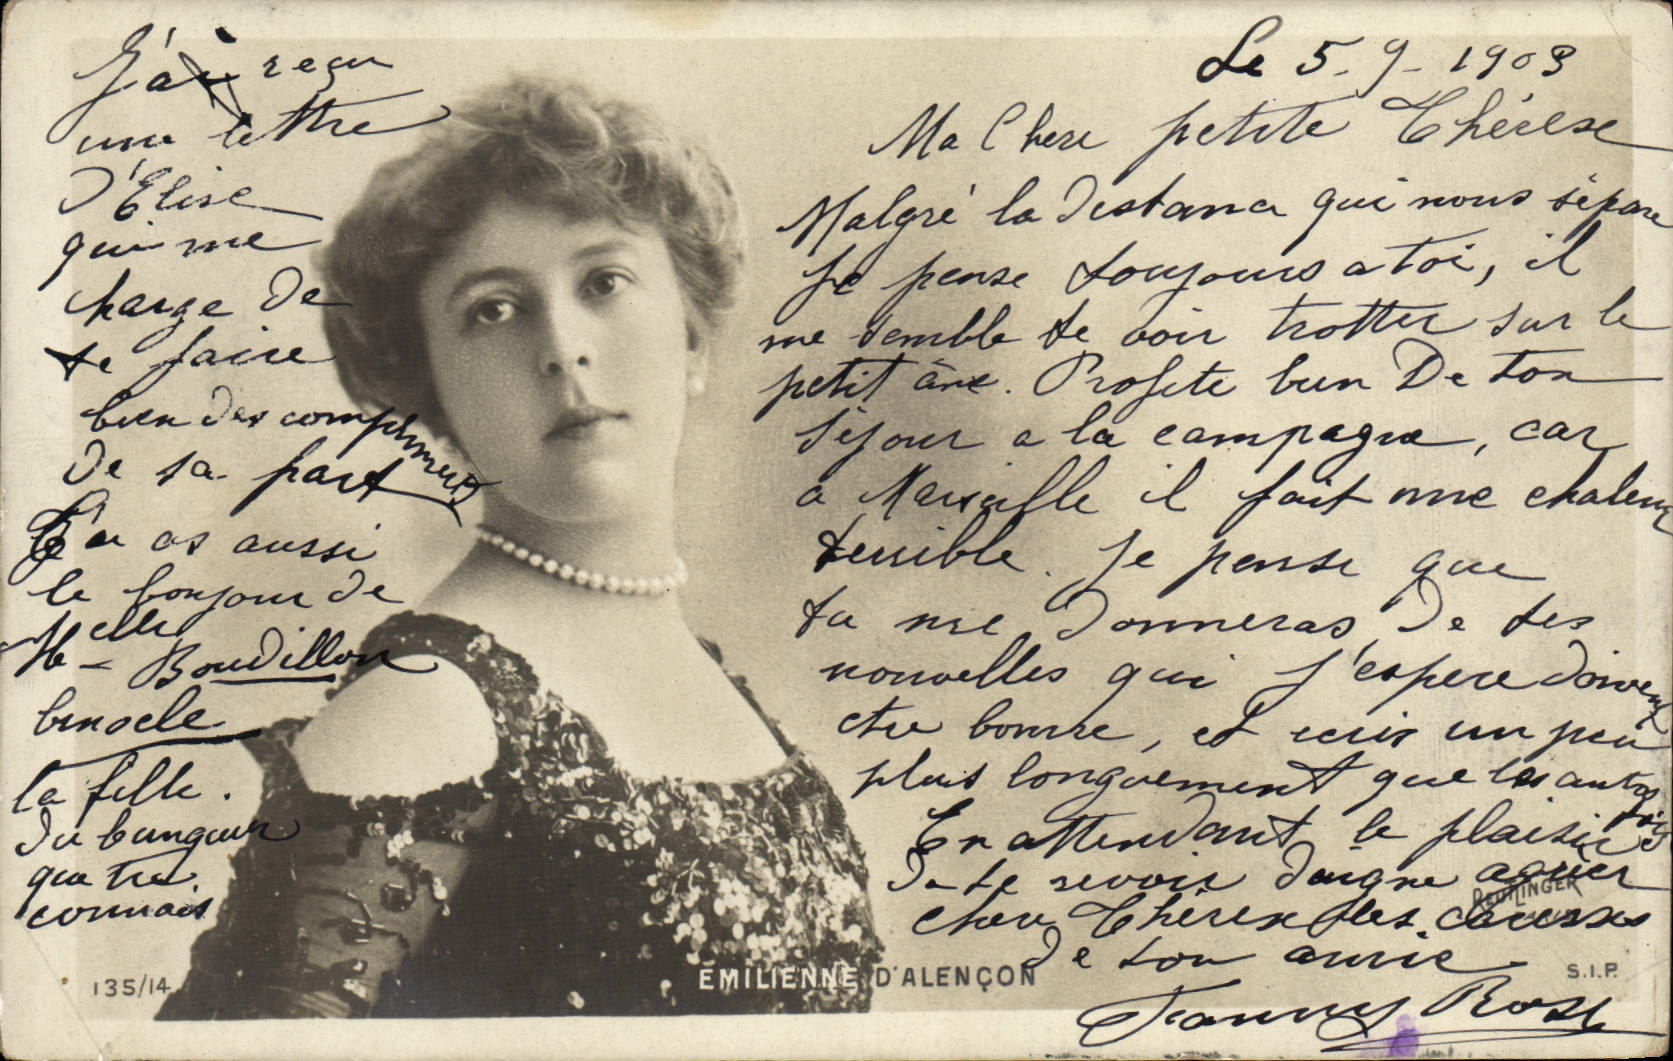 Le 5-9-1903
Ma Chere petite Thérèse
Malgré la distance qui nous sépare
Je pense toujours a toi, il
me semble te voir trotter sur le
petit âne. Profite bien De ton
séjour a la campagne, car
a Marseille il fait une chaleur
terrible. Je pense que
tu me donneras De tes
nouvelles qui j'espere doivent
etre bonne, et ecris un peu
plus longuement que les autres
fois
En attendant le plaisir
De te revoir daigne agréer
chere Thérèse les caresses
De ton amie
Fanny Rose
J'ai reçu
une lettre
D'Elise
qui me
charge De
te faire
bien des compliments
De sa part
Tu as aussi
le bonjour de
Melle Boudillon
binocle
la fille.
Du
que tu
connais
135/14
ÉMILIENNE D'ALENÇON
REUTLINGER
S.I.P.